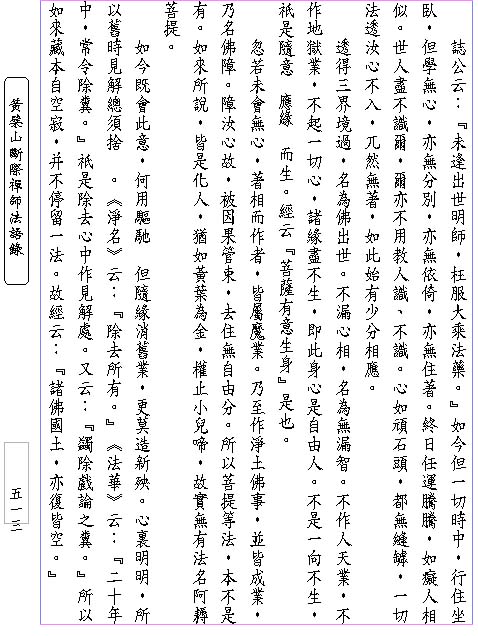 誌公云：『未逢出世明師，枉服大乘法藥。』如今但一切時中，行住坐
臥，但學無心，亦無分別，亦無依倚，亦無住著。終日任運騰騰，如癡人相
似。世人盡不識爾，爾亦不用教人識、不識。心如頑石頭，都無縫罅，一切
法透汝心不入，兀然無著，如此始有少分相應。
透得三界境過，名為佛出世。不漏心相，名為無漏智。不作人天業，不
作地獄業，不起一切心，諸緣盡不生，即此身心是自由人。不是一向不生，
祇是隨意　應緣　而生。經云『菩薩有意生身』是也。
忽若未會無心，著相而作者，皆屬魔業。乃至作淨土佛事，並皆成業，
乃名佛障。障汝心故，被因果管束，去住無自由分。所以菩提等法，本不是
有。如來所說，皆是化人，猶如黃葉為金，權止小兒啼，故實無有法名阿耨
菩提。
如今既會此意，何用驅馳　但隨緣消舊業，更莫造新殃。心裏明明，所
以舊時見解總須捨　。《淨名》云：『除去所有。』《法華》云：『二十年
中，常令除糞。』祇是除去心中作見解處。又云：『蠲除戲論之糞。』所以
如來藏本自空寂，并不停留一法。故經云：『諸佛國土，亦復皆空。』
黃檗山斷際禪師法語錄
五一三